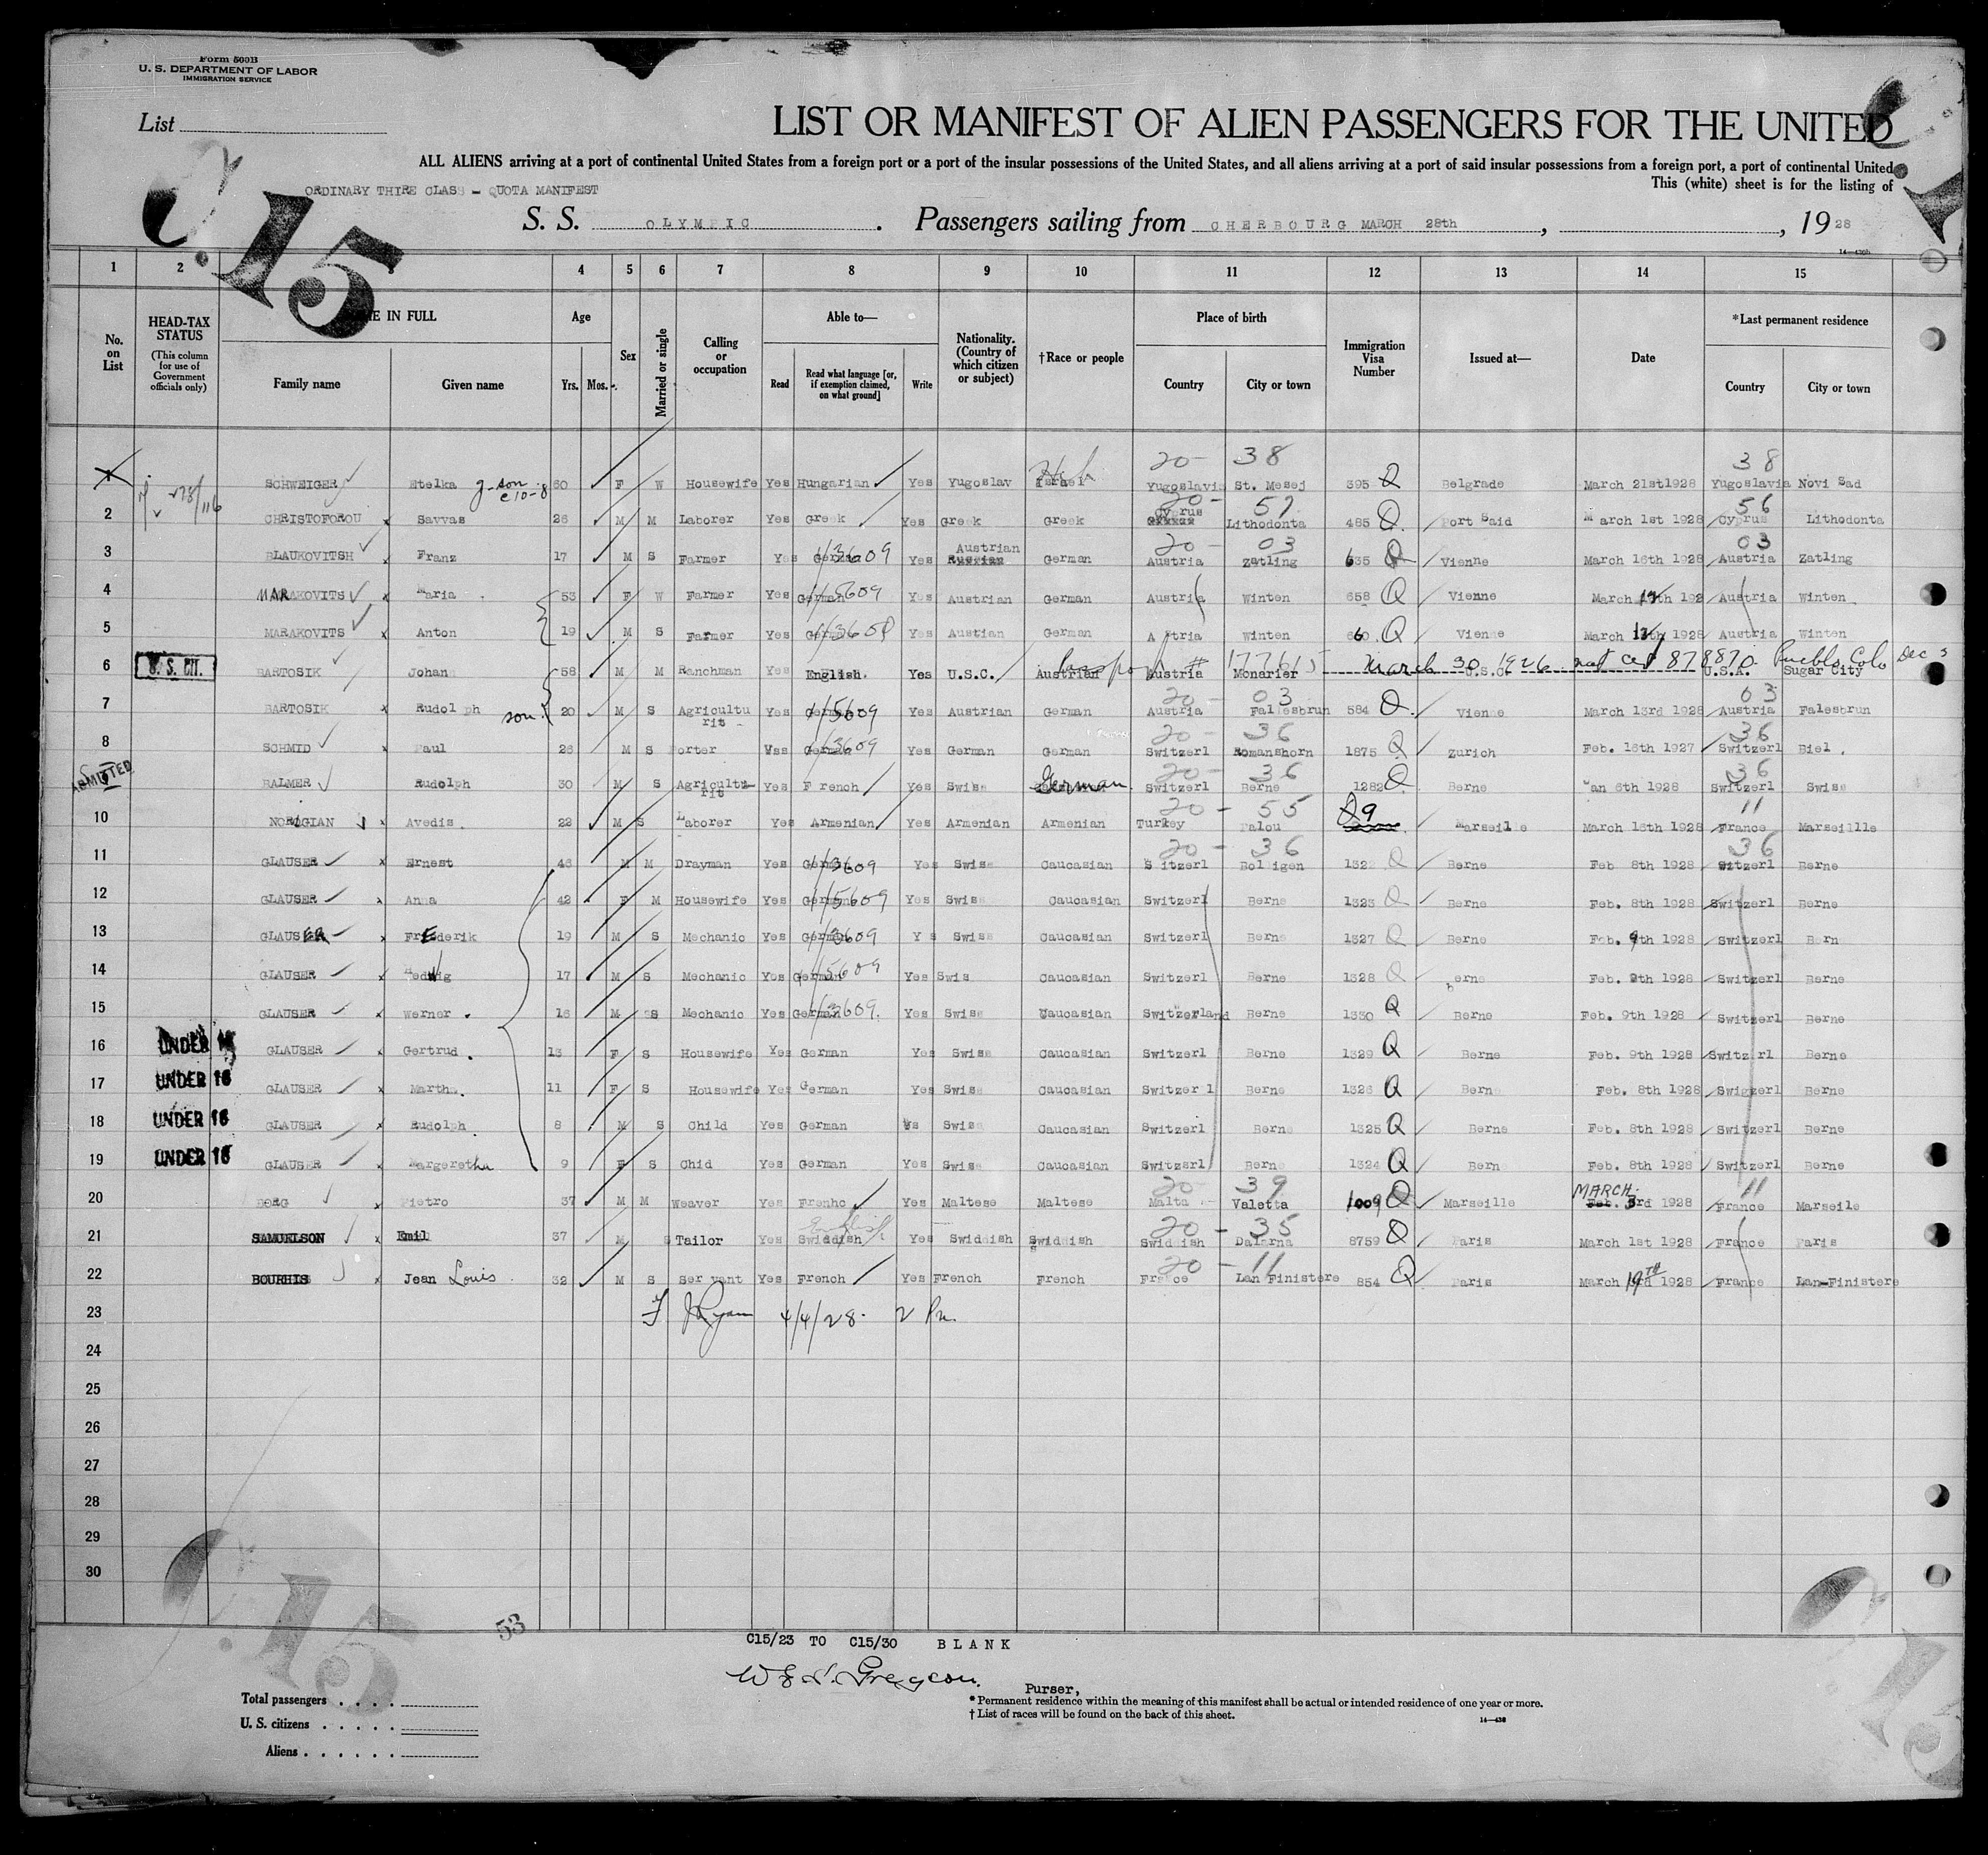 Form 500B
U. S. DEPARTMENT OF LABOR
IMMIGRATION SERVICE
List
LIST OR MANIFEST OF ALIEN PASSENGERS FOR THE UNITED
ALL ALIENS arriving at a port of continental United States from a foreign port or a port of the insular possessions of the United States, and all aliens arriving at a port of said insular possessions from a foreign port, a port of continental United
This (white) sheet is for the listing of
ORDINARY THIRE CLASS - QUOTA MANIFEST
15
S. S. OLYMPIC. Passengers sailing from CHERBOURG MARCH 28th, , 1928
1 2 4 5 6 7 8 9 10 11 12 13 14 15
No. on List
HEAD-TAX STATUS (This column for use of Government officials only)
IN FULL
Family name Given name
Age Yrs. Mos.
Sex
Married or single
Calling or occupation
Able to— Read Read what language [or, if exemption claimed, on what ground] Write
Nationality. (Country of which citizen or subject)
†Race or people
Place of birth Country City or town
Immigration Visa Number
Issued at—
Date
*Last permanent residence Country City or town
20- 38 38
1 SCHWEIGER Etelka 60 F W Housewife Yes Hungarian Yes Yugoslav Yugoslavia St. Mesej 395 Q Belgrade March 21st1928 Yugoslavia Novi Sad
20- 57 56
2 CHRISTOFOROU Savvas 26 M M Laborer Yes Greek Yes Greek Greek Cyprus Lithodonta 485 Q Port Said March 1st 1928 Cyprus Lithodonta
20- 03 03
3 BLAUKOVITSH Franz 17 M S Farmer Yes German Yes Austrian German Austria Zatling 635 Q Vienne March 16th 1928 Austria Zatling
4 MARAKOVITS Maria 53 F W Farmer Yes German Yes Austrian German Austria Winten 658 Q Vienne March 192 Austria Winten
5 MARAKOVITS Anton 19 M S Farmer Yes German Yes Austian German A stria Winten 660 Q Vienne March 1928 Austria Winten
6 U. S. CIT. BARTOSIK Johan 58 M M Ranchman Yes English. Yes U.S.C. Austrian Austria Monarier # 177615 March 30 1926 nat cert 878870 Pueblo Colo Dec U.S.C. U.S.A. Sugar City
20- 03 03
7 BARTOSIK Rudolph son 20 M S Agricultu rist Yes German Yes Austrian German Austria Fallesbrun 584 Q Vienne March 13rd 1928 Austria Falesbrun
20- 36 36
8 SCHMID Paul 26 M S Porter Yss German Yes German German Switzerl Romanshorn 1875 Q Zurich Feb. 16th 1927 Switzerl Biel
20- 36 36
ADMITTED BALMER Rudolph 30 M S Agricultu- rit Yes French Yes Swiss German Switzerl Berne 1282 Q Berne Jan 6th 1928 Switzerl Swiss
20- 55 11
10 NORIGIAN Avedis 22 M S Laborer Yes Armenian Yes Armenian Armenian Turkey Palou Q9 Marseille March 16th 1928 France Marseillle
20- 36 36
11 GLAUSER Ernest 46 M M Drayman Yes German Yes Swiss Caucasian S itzerl Bolligen 1322 Q Berne Feb 8th 1928 Switzerl Berne
12 GLAUSER Anna 42 F M Housewife Yes German Yes Swiss Caucasian Switzerl Berne 1323 Q Berne Feb. 8th 1928 Switzerl Berne
13 GLAUSER FrEderik 19 M S Mechanic Yes German Y s Swiss Caucasian Switzerl Berne 1327 Q Berne Feb. 9th 1928 Switzerl Bern
14 GLAUSER Hedwig 17 M S Mechanic Yes German Yes Swis Caucasian Switzerl Berne 1328 Q Berne Feb. 9th 1928 Switzerl Berne
15 GLAUSER Werner 16 M S Mechanic Yes German Yes Swiss Caucasian Switzerland Berne 1330 Q Berne Feb. 9th 1928 Switzerl Berne
16 UNDER 16 GLAUSER Gertrud. 13 F S Housewife Yes German Yes Swiss Caucasian Switzerl Berne 1329 Q Berne Feb. 9th 1928 Switz rl Berne
17 UNDER 16 GLAUSER Martha. 11 F S Housewife Yes German Yes Swiss Caucasian Switzer l Berne 1326 Q Berne Feb. 8th 1928 Swigzerl Berne
18 UNDER 16 GLAUSER Rudolph 8 M S Child Yes German Swiss Caucasian Switzerl Berne 1325 Q Berne Feb. 8th 1928 Switzerl Berne
19 UNDER 16 GLAUSER Margeretha 9 F S Chid Yes German Yes Swiss Caucasian Switzerl Berne 1324 Q Bern Feb. 8th 1928 Switzerl Berne
20- 39 MARCH 11
20 BORG Pietro 37 M M Weaver Yes Frenhc Yes Maltese Maltese Malta Valetta 1009 Q Marseille 3rd 1928 France Marseile
20- 35
21 SAMUELSON Emil 37 M S Tailor Yes Swiddish Yes Swiddish Swiddish Swiddish Dalarna 8759 Q Paris March 1st 1928 France Paris
20- 11
22 BOURHIS Jean Louis 32 M S Ser vant Yes French Yes French French France Lan Finistere 854 Q Paris March 19TH 1928 France Lan-Finistere
23 Ryan 4/4/28
24
25
26
27
28
29
30
15
53
C15/23 TO C15/30 BLANK
Purser,
Total passengers
U. S. citizens
Aliens
* Permanent residence within the meaning of this manifest shall be actual or intended residence of one year or more.
† List of races will be found on the back of this sheet.
14—436